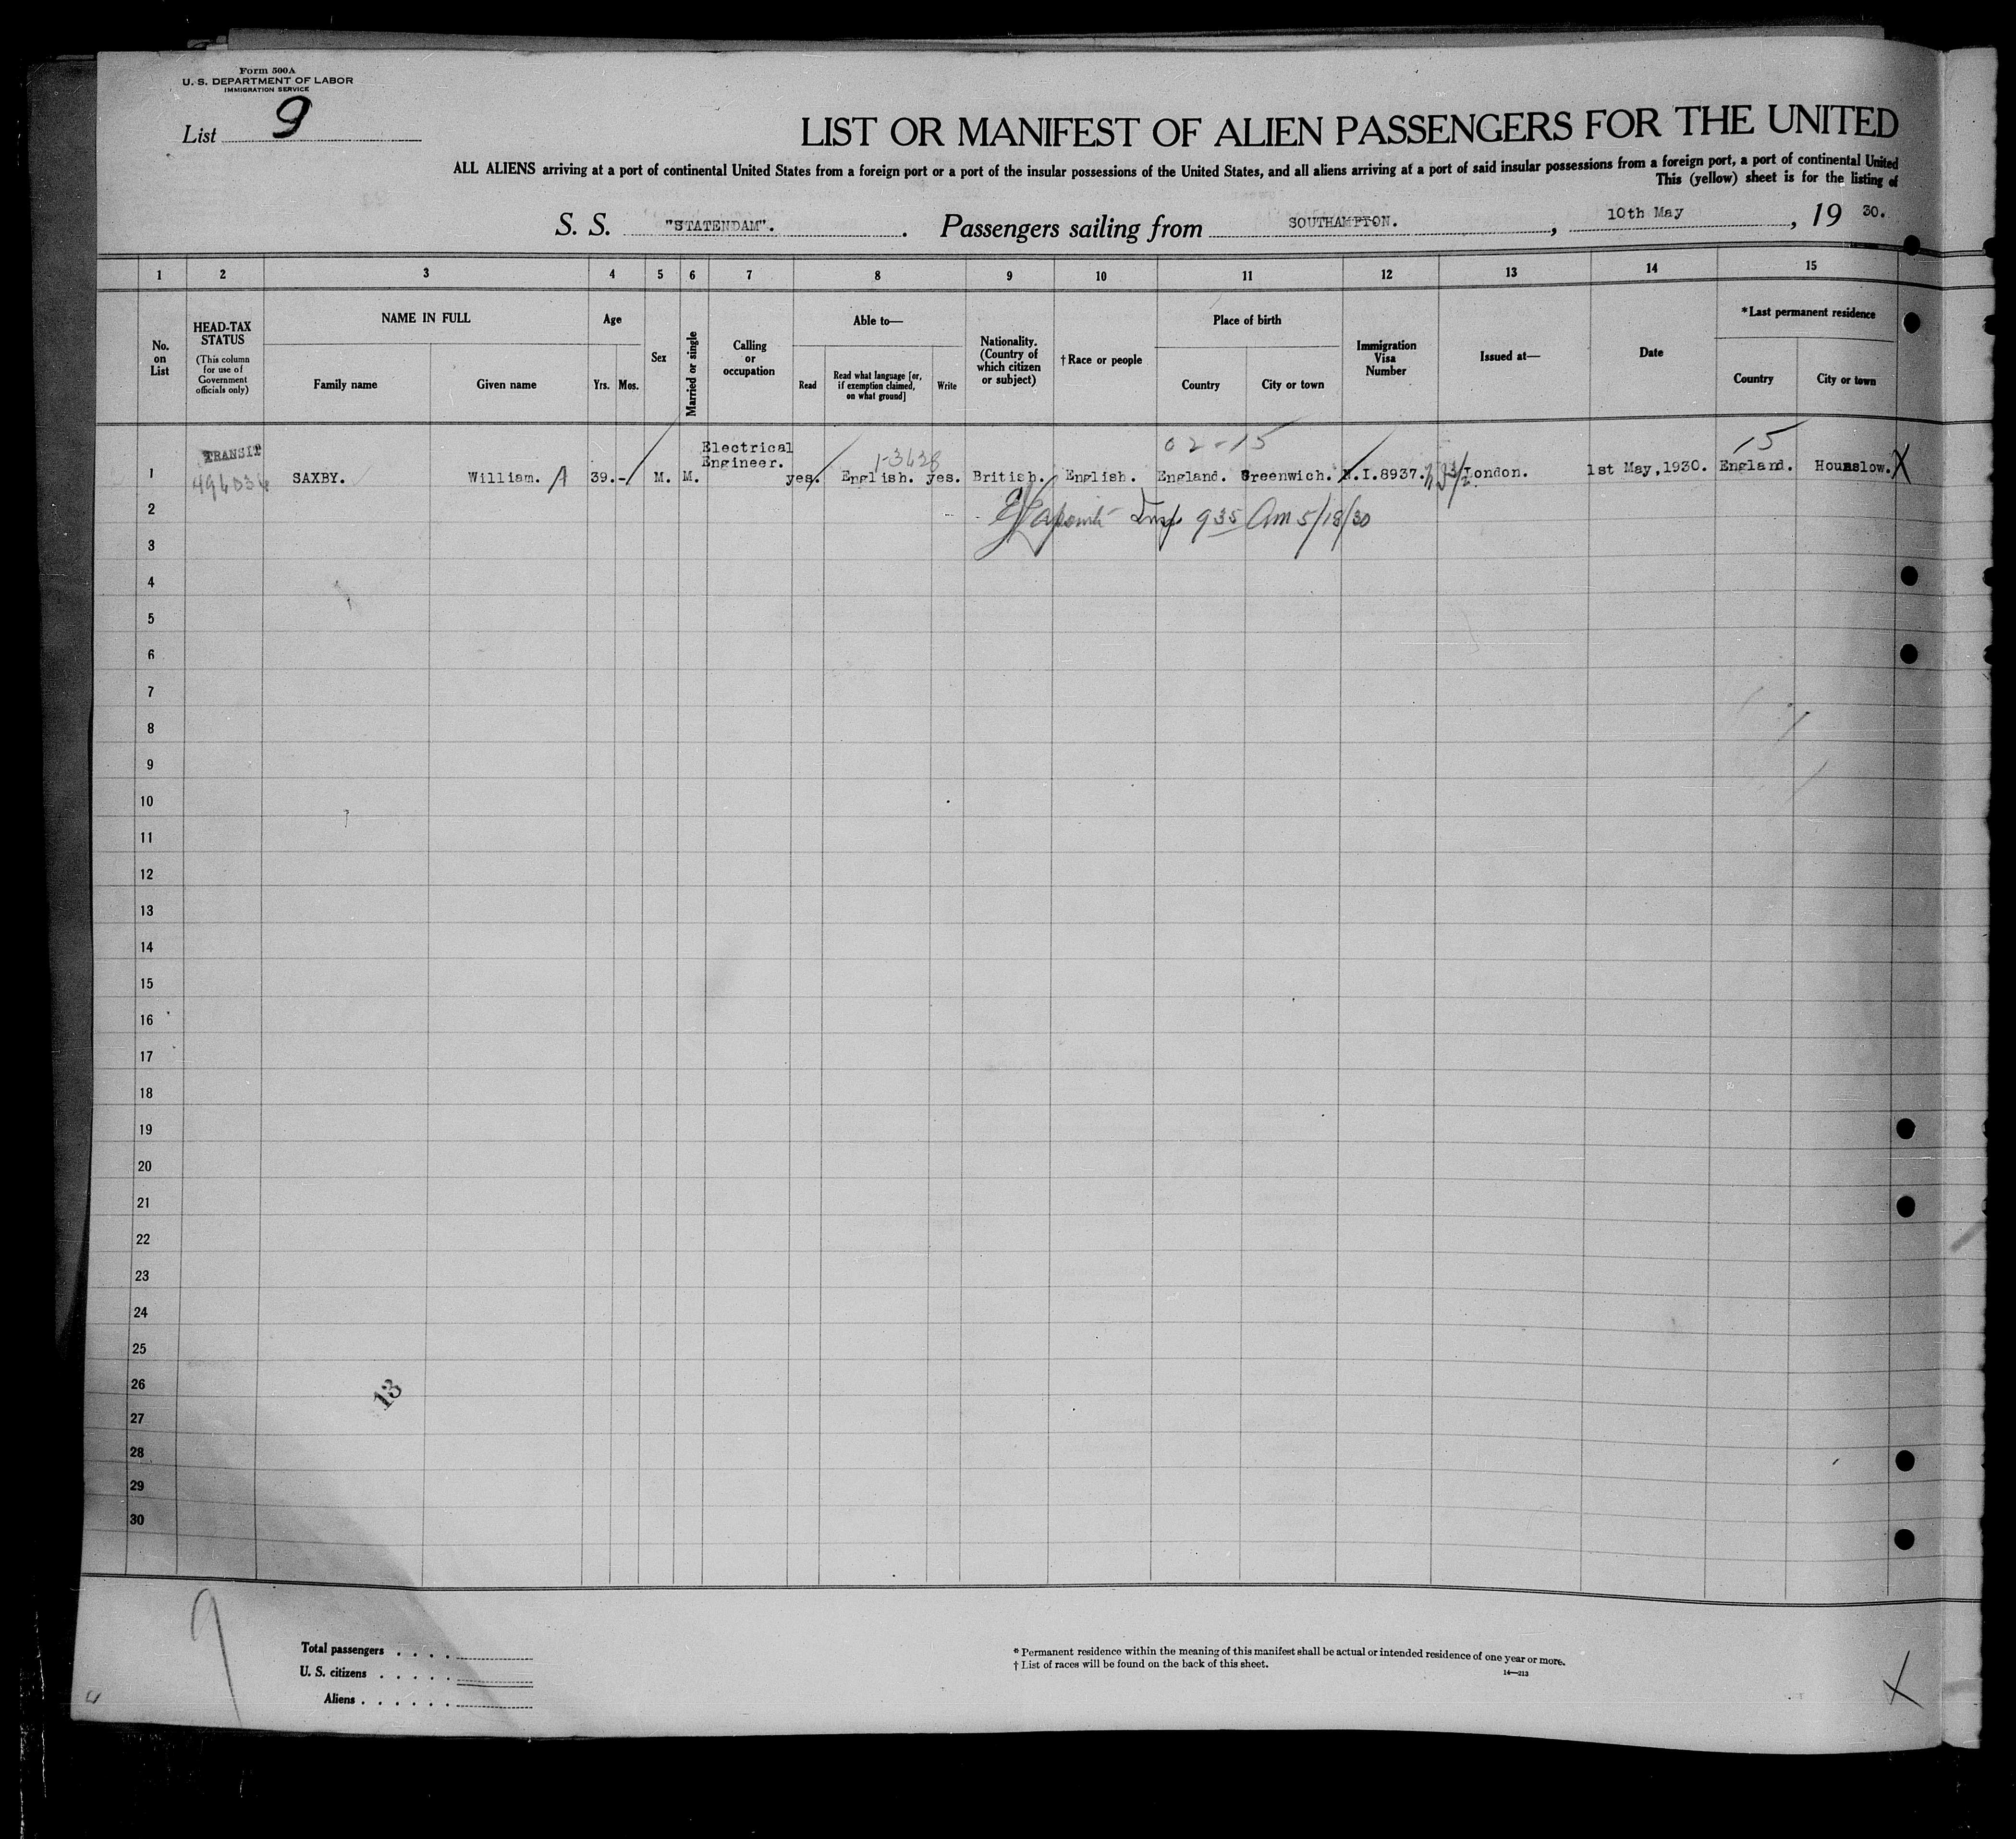 Form 500A
U. S. DEPARTMENT OF LABOR
IMMIGRATION SERVICE
List 9
LIST OR MANIFEST OF ALIEN PASSENGERS FOR THE UNITED
ALL ALIENS arriving at a port of continental United States from a foreign port or a port of the insular possessions of the United States, and all aliens arriving at a port of said insular possessions from a foreign port, a port of continental United
This (yellow) sheet is for the listing of
S. S. "STATENDAM". Passengers sailing from SOUTHAMPTON., 10th May, 19 30.
1 2 3 4 5 6 7 8 9 10 11 12 13 14 15
No. on List
HEAD-TAX STATUS
(This column for use of Government officials only)
NAME IN FULL
Family name
Given name
Age
Yrs. Mos.
Sex
Married or single
Calling or occupation
Able to—
Read
Read what language [or, if exemption claimed, on what ground]
Write
Nationality. (Country of which citizen or subject)
† Race or people
Place of birth
Country
City or town
Immigration Visa Number
Issued at—
Date
*Last permanent residence
Country
City or town
02-15
15
TRANSIT
1-3628
1 SAXBY. William. A 39.- M. M. Electrical Engineer. yes. English. yes. British. English. England. Greenwich. N.I.8937. London. 1st May,1930. England. Hounslow. X
2 Insp. 935 Am 5/18/30
3
4
5
6
7
8
9
10
11
12
13
14
15
16
17
18
19
20
21
22
23
24
25
26
13
27
28
29
30
9
Total passengers . . . .
U. S. citizens . . . . .
Aliens . . . . . .
* Permanent residence within the meaning of this manifest shall be actual or intended residence of one year or more.
† List of races will be found on the back of this sheet.
14—213
X